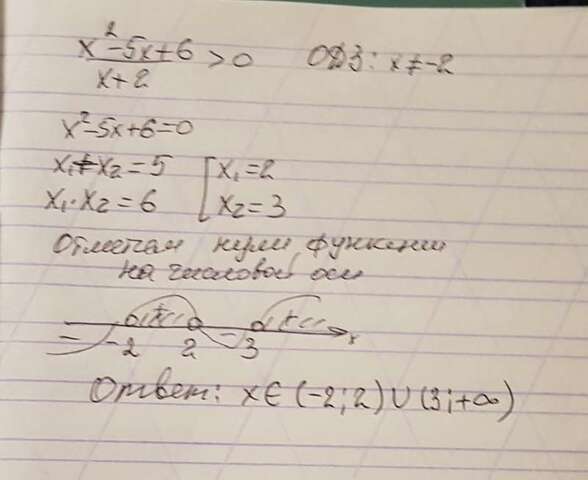 x²-5x+6 / x+2 > 0 ОДЗ: x≠-2
x²-5x+6=0
x₁+x₂=5 [x₁=2
x₁·x₂=6 [x₂=3
Отмечаем нули функции
на числовой оси
- + - + x
-2 2 3
Ответ: x∈(-2;2)∪(3;+∞)